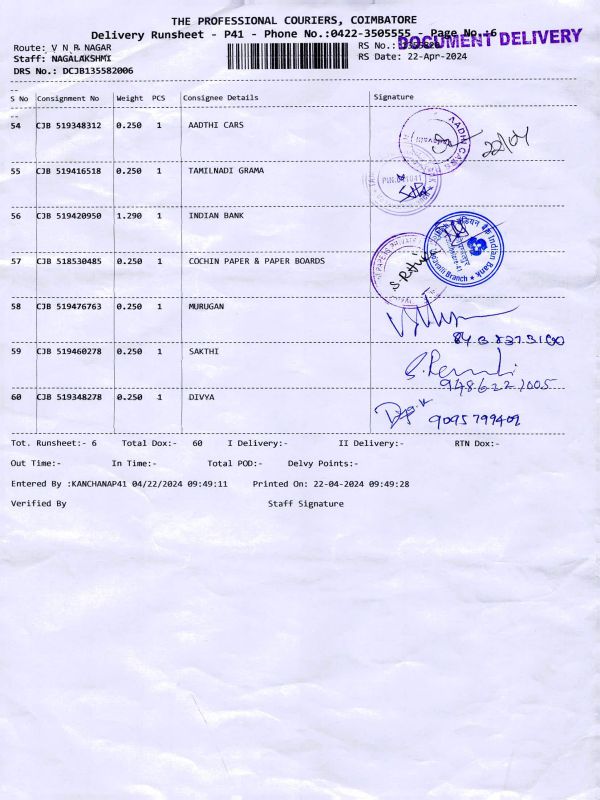 THE PROFESSIONAL COURIERS, COIMBATORE
Delivery Runsheet - P41 - Phone No.:0422-3505555 - Page No.:6
DOCUMENT DELIVERY
Route: V N R NAGAR
RS No.:
Staff: NAGALAKSHMI
RS Date: 22-Apr-2024
DRS No.: DCJB135582006
S No Consignment No Weight PCS Consignee Details Signature
54 CJB 519348312 0.250 1 AADTHI CARS
22/04
55 CJB 519416518 0.250 1 TAMILNADI GRAMA
56 CJB 519420950 1.290 1 INDIAN BANK
Indian Bank
57 CJB 518530485 0.250 1 COCHIN PAPER & PAPER BOARDS
58 CJB 519476763 0.250 1 MURUGAN
59 CJB 519460278 0.250 1 SAKTHI
60 CJB 519348278 0.250 1 DIVYA
9095799409
Tot. Runsheet:- 6 Total Dox:- 60 I Delivery:- II Delivery:- RTN Dox:-
Out Time:- In Time:- Total POD:- Delvy Points:-
Entered By :KANCHANAP41 04/22/2024 09:49:11 Printed On: 22-04-2024 09:49:28
Verified By Staff Signature